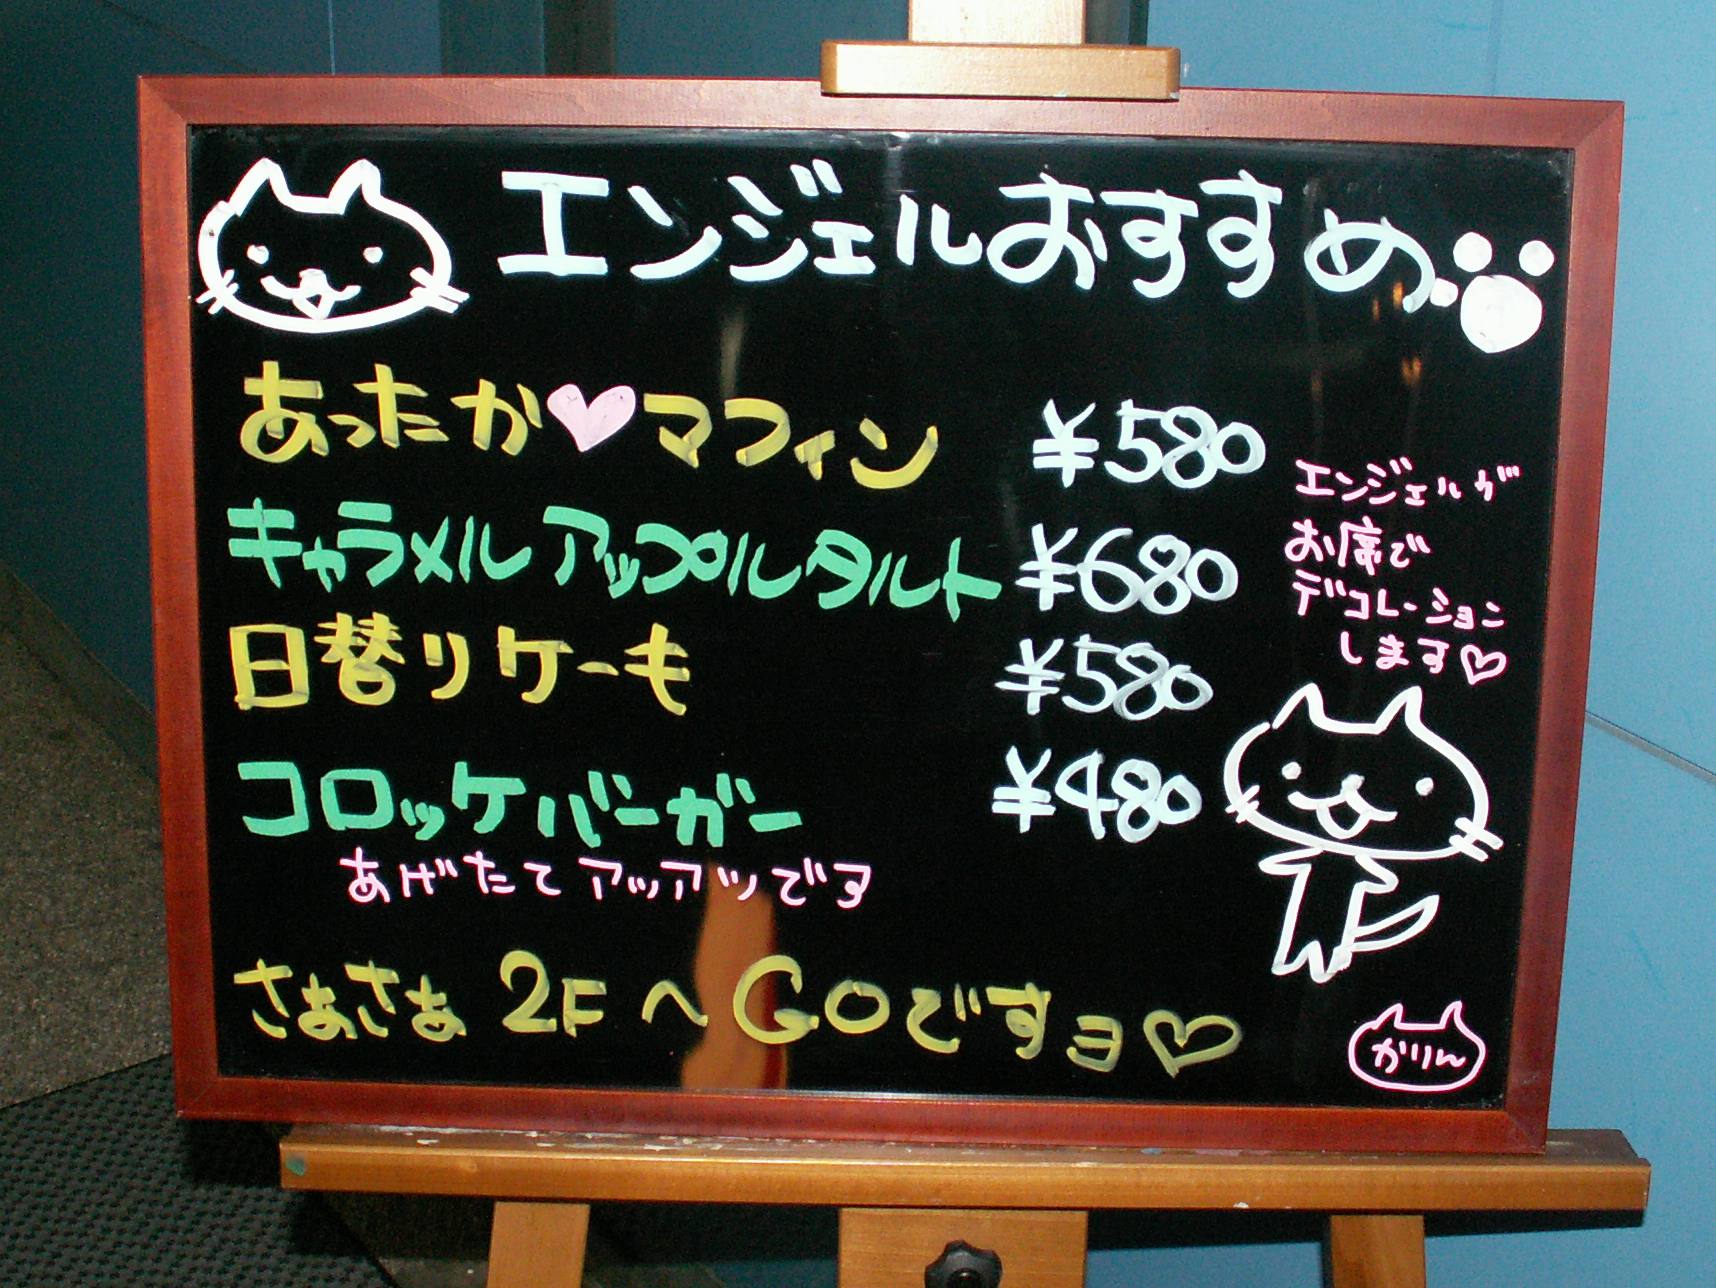 エンジェルおすすめ
あったか♡マフィン ¥580
キャラメルアップルタルト ¥680
日替りケーも ¥580
コロッケバーガー ¥480
あげたてアッツアツです
エンジェルが
お席で
デコレーション
します♡
さぁさぁ 2FへGOですョ♡
かりん